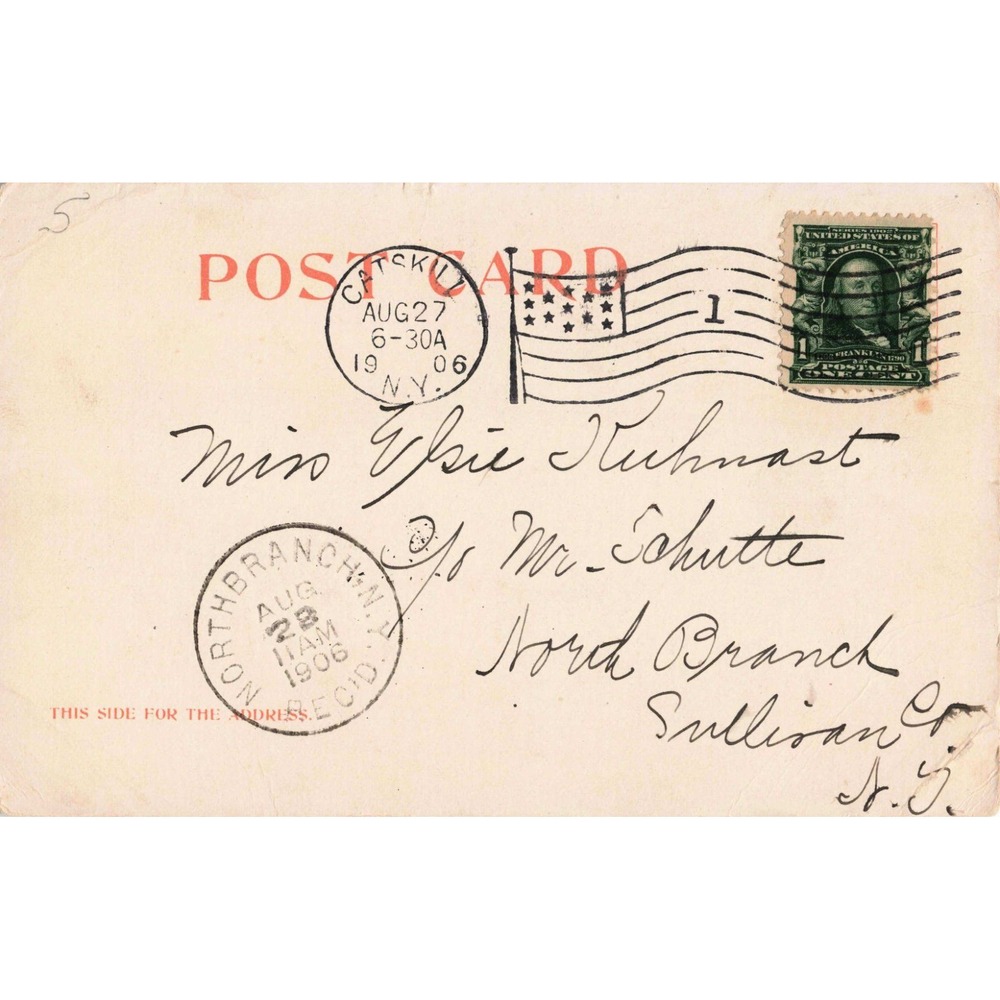 5
POST CARD
CATSKILL
AUG 27
6-30A
19 06
N.Y.
1
SERIES 1902
UNITED STATES OF
AMERICA
FRANKLIN 1790
POSTAGE
1 ONE CENT 1
Miss Elsie Kuhnast
c/o Mr. Schutte
North Branch
Sullivan Co
N.Y.
NORTH BRANCH, N.Y.
AUG
28
11 AM
1906
REC'D.
THIS SIDE FOR THE ADDRESS.